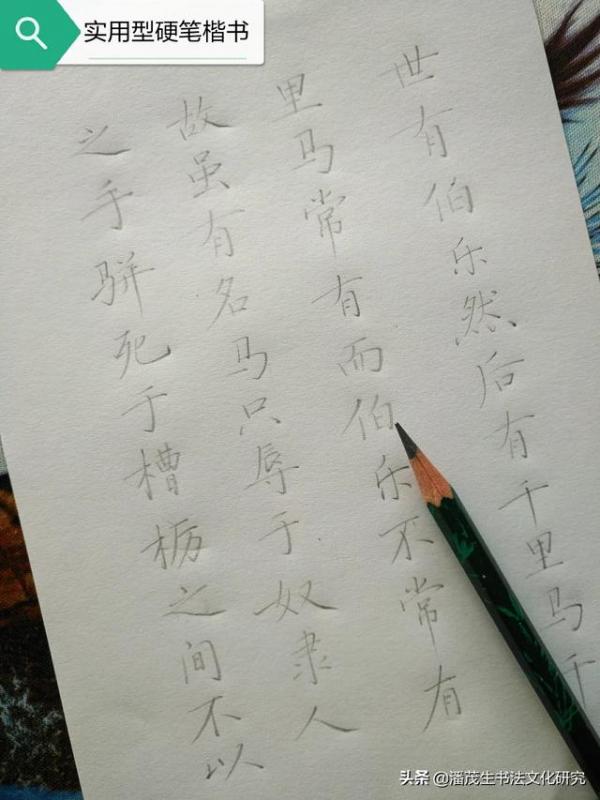 实用型硬笔楷书
世有伯乐然后有千里马千
里马常有而伯乐不常有
故虽有名马只辱于奴隶人
之手骈死于槽枥之间不以
头条@潘茂生书法文化研究